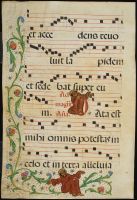 et acce dens revo
luit la pidem
et sede bat super eu
magni
mihi omnis potestas in
celo et in terra alleluia